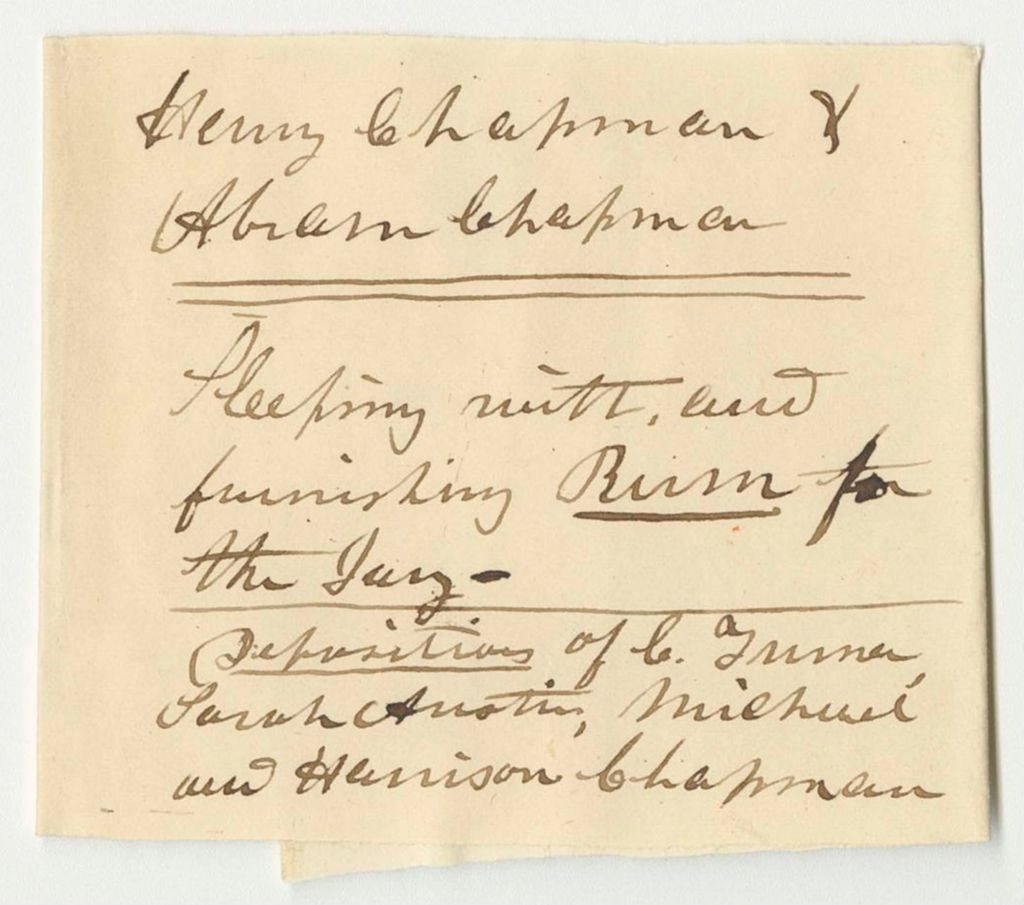 Henry Chapman &
Abram Chapman
Sleeping with, and
furnishing Rum for
the Jury -
Depositions of C. Turner,
Sarah Austin, Michael
and Harrison Chapman